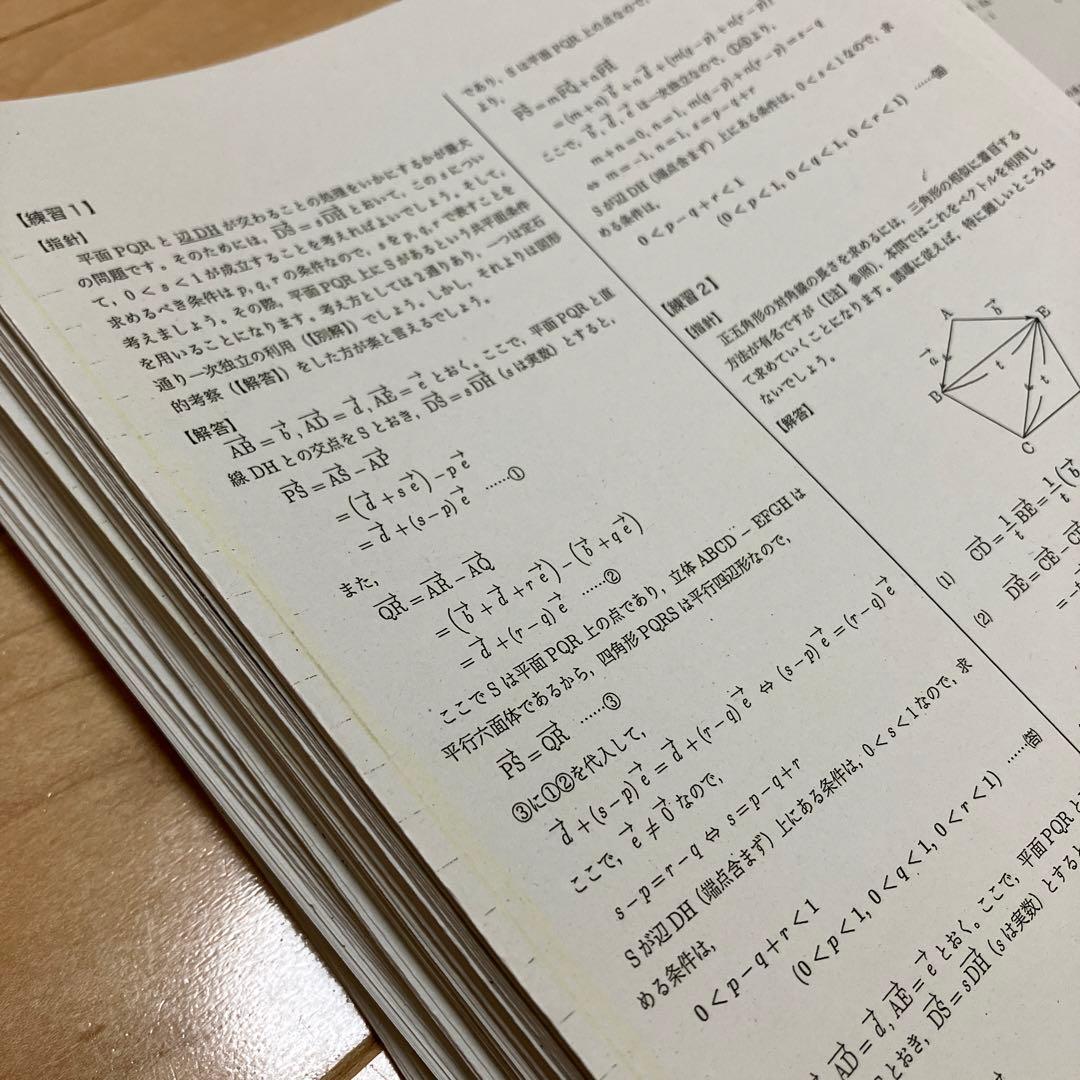 【練習1】
【指針】
平面PQRと辺DHが交わることの処理をいかにするかが最大
の問題です。そのためには，DS→＝sDH→とおいて，このsについ
て，0＜s＜1が成立することを考えればよいでしょう。そして，
求めるべき条件はp, q, rの条件なので，sをp, q, rで表すことを
考えましょう。その際，平面PQR上にSがあるという共平面条件
を用いることになります。考え方としては2通りあり，一つは定石
通り一次独立の利用（【別解】）でしょう。しかし，それよりは図形
的考察（【解答】）をした方が楽と言えるでしょう。
【解答】
AB→＝b→, AD→＝d→, AE→＝e→とおく。ここで，平面PQRと直
線DHとの交点をSとおき，DS→＝sDH→（sは実数）とすると，
PS→＝AS→－AP→
＝(d→＋se→)－pe→
＝d→＋(s－p)e→ ……①
また，
QR→＝AR→－AQ→
＝(b→＋d→＋re→)－(b→＋qe→)
＝d→＋(r－q)e→ ……②
ここでSは平面PQR上の点であり，立体ABCD－EFGHは
平行六面体であるから，四角形PQRSは平行四辺形なので，
PS→＝QR→ ……③
③に①②を代入して，
d→＋(s－p)e→＝d→＋(r－q)e→ ⇔ (s－p)e→＝(r－q)e→
ここで，e→≠0→なので，
s－p＝r－q ⇔ s＝p－q＋r
Sが辺DH（端点含まず）上にある条件は，0＜s＜1なので，求
める条件は，
0＜p－q＋r＜1
(0＜p＜1, 0＜q＜1, 0＜r＜1) ……答
AD→＝d→, AE→＝e→とおく。ここで，平面PQRと
とおき，DS→＝sDH→（sは実数）とすると
であり，Sは平面PQR上の点なので，
より，
PS→＝mPQ→＋nPR→
＝(m＋n)b→＋nd→＋{m(q－p)＋n(r－p)
ここで，b→, d→, e→は一次独立なので，①④より，
m＋n＝0, n＝1, m(q－p)＋n(r－p)＝s－q
⇔ m＝－1, n＝1, s＝p－q＋r
Sが辺DH（端点含まず）上にある条件は，0＜s＜1なので，求
める条件は，
0＜p－q＋r＜1
(0＜p＜1, 0＜q＜1, 0＜r＜1) ……答
【練習2】
【指針】
正五角形の対角線の長さを求めるには，三角形の相似に着目する
方法が有名ですが（【注】参照），本問ではこれをベクトルを利用し
て求めていくことになります。誘導に従えば，特に難しいところは
ないでしょう。
【解答】
A b→ E
a→ t
B t t
C
(1) CD→＝1/t BE→＝1/t(b→
(2) DE→＝CE→－C